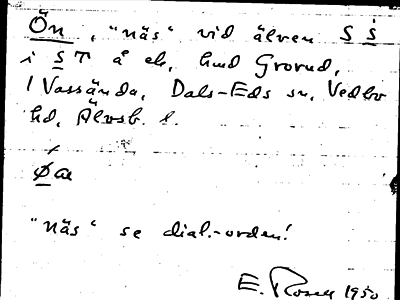 Ön, "näs" vid älven S s
i S T å
1 Vassända, Dals-Eds sn, Vedbo
hd, Älvsb. l.
Øa
"näs" se dial.-orden!
E. Rosell 1950